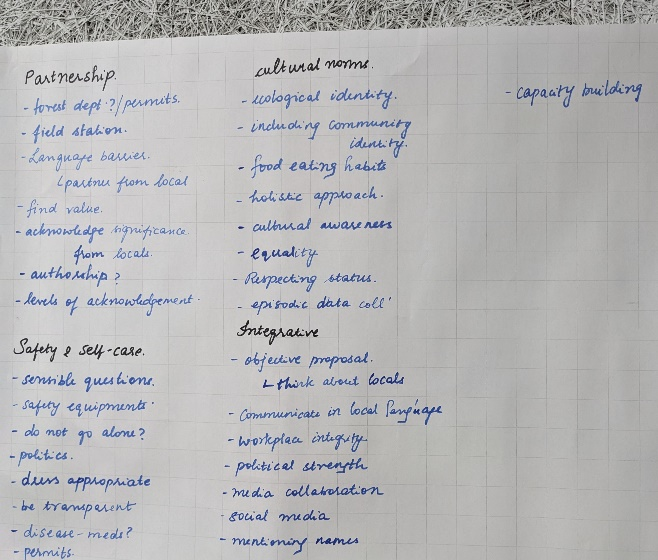 Partnership.
- forest dept ?/permits.
- field station.
- Language barrier.
↳ partner from local
- find value.
- acknowledge significance
from locals.
- authorship ?
- levels of acknowledgement.
Safety & self-care.
- sensible questions.
- safety equipments.
- do not go alone?
- politics.
- dress appropriate
- be transparent
- disease - meds?
- permits.
cultural norms.
- ecological identity.
- including community
identity.
- food eating habits
- holistic approach.
- cultural awareness
- equality
- Respecting status.
- episodic data coll'
Integrative
- objective proposal.
↳ think about locals
- Communicate in local language
- workplace integrity
- political strength
- media collaboration
- social media
- mentioning names
- capacity building